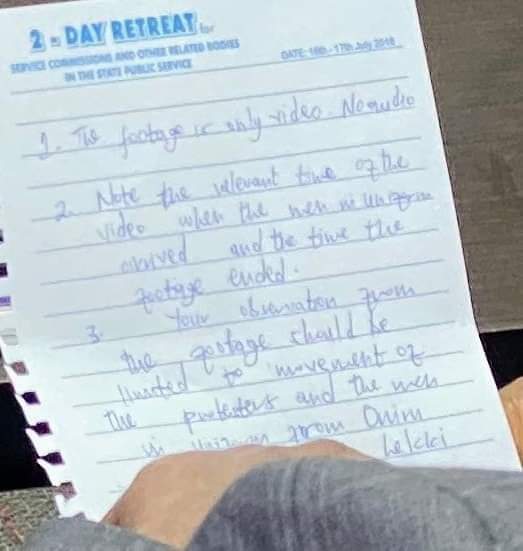 2 - DAY RETREAT for
SERVICE COMMISSIONS AND OTHER RELATED BODIES
IN THE STATE PUBLIC SERVICE
DATE: 16th - 17th July 2018
1. The footage is only video. No audio
2. Note the relevant time of the
video when the men in uniform
arrived and the time the
footage ended.
3. Your observation from
the footage should be
limited to movement of
the protesters and the men
in uniform from
Lekki